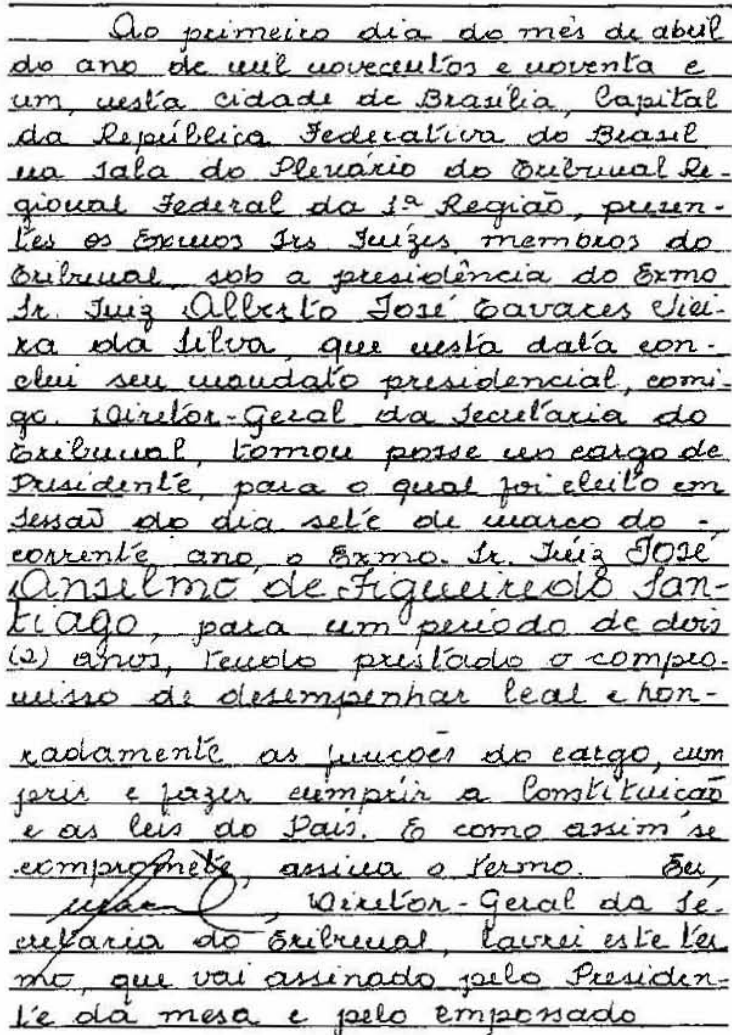 Ao primeiro dia do mês de abril
do ano de mil novecentos e noventa e
um, nesta cidade de Brasília, Capital
da República Federativa do Brasil
na sala do Plenário do Tribunal Re-
gional Federal da 1ª Região, presen-
tes os Exmos Srs Juízes membros do
Tribunal, sob a presidência do Exmo
Sr. Juiz Alberto José Tavares Viei-
ra da Silva, que nesta data con-
clui seu mandato presidencial, comi-
go. Diretor-Geral da Secretaria do
Tribunal, tomou posse no cargo de
Presidente, para o qual foi eleito em
Sessão do dia sete de março do -
corrente ano, o Exmo. Sr. Juiz JOSÉ
Anselmo de Figueiredo San-
tiago, para um período de dois
(2) anos, tendo prestado o compro-
misso de desempenhar leal e hon-
radamente as funções do cargo, cum
prir e fazer cumprir a Constituição
e as leis do País. E como assim se
compromete, assina o termo. Eu,
, Diretor-Geral da Se-
cretaria do Tribunal, lavrei este ter
mo, que vai assinado pelo Presiden-
te da mesa e pelo empossado